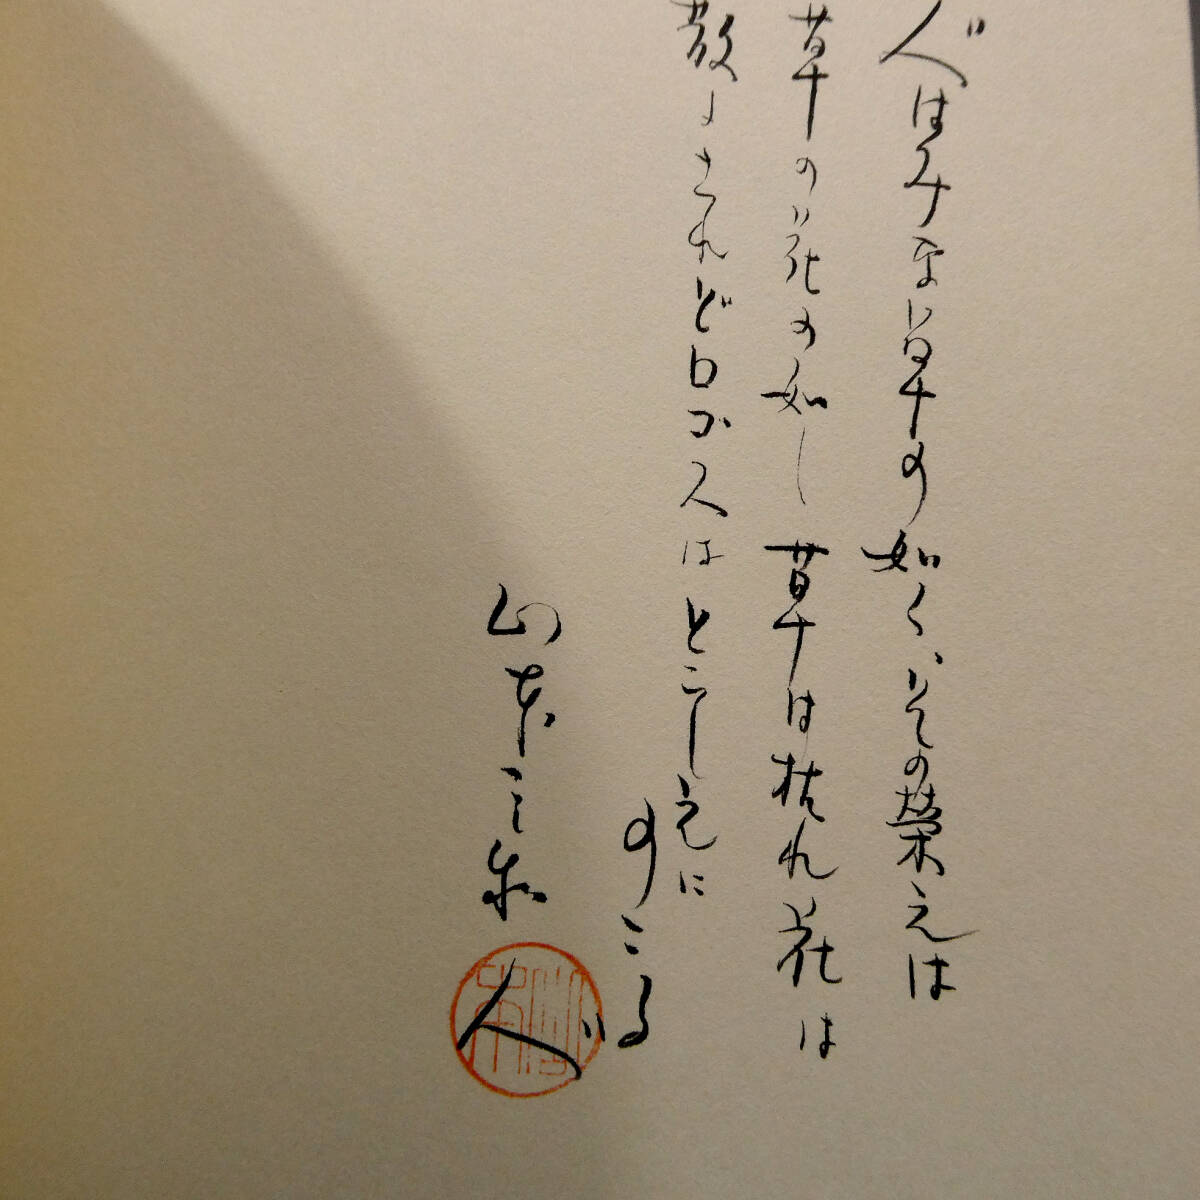 人はみな草の如くその栄えは
草の花の如し草は枯れ花は
散りされどロゴスはとこしえに
のこる
山本三和人